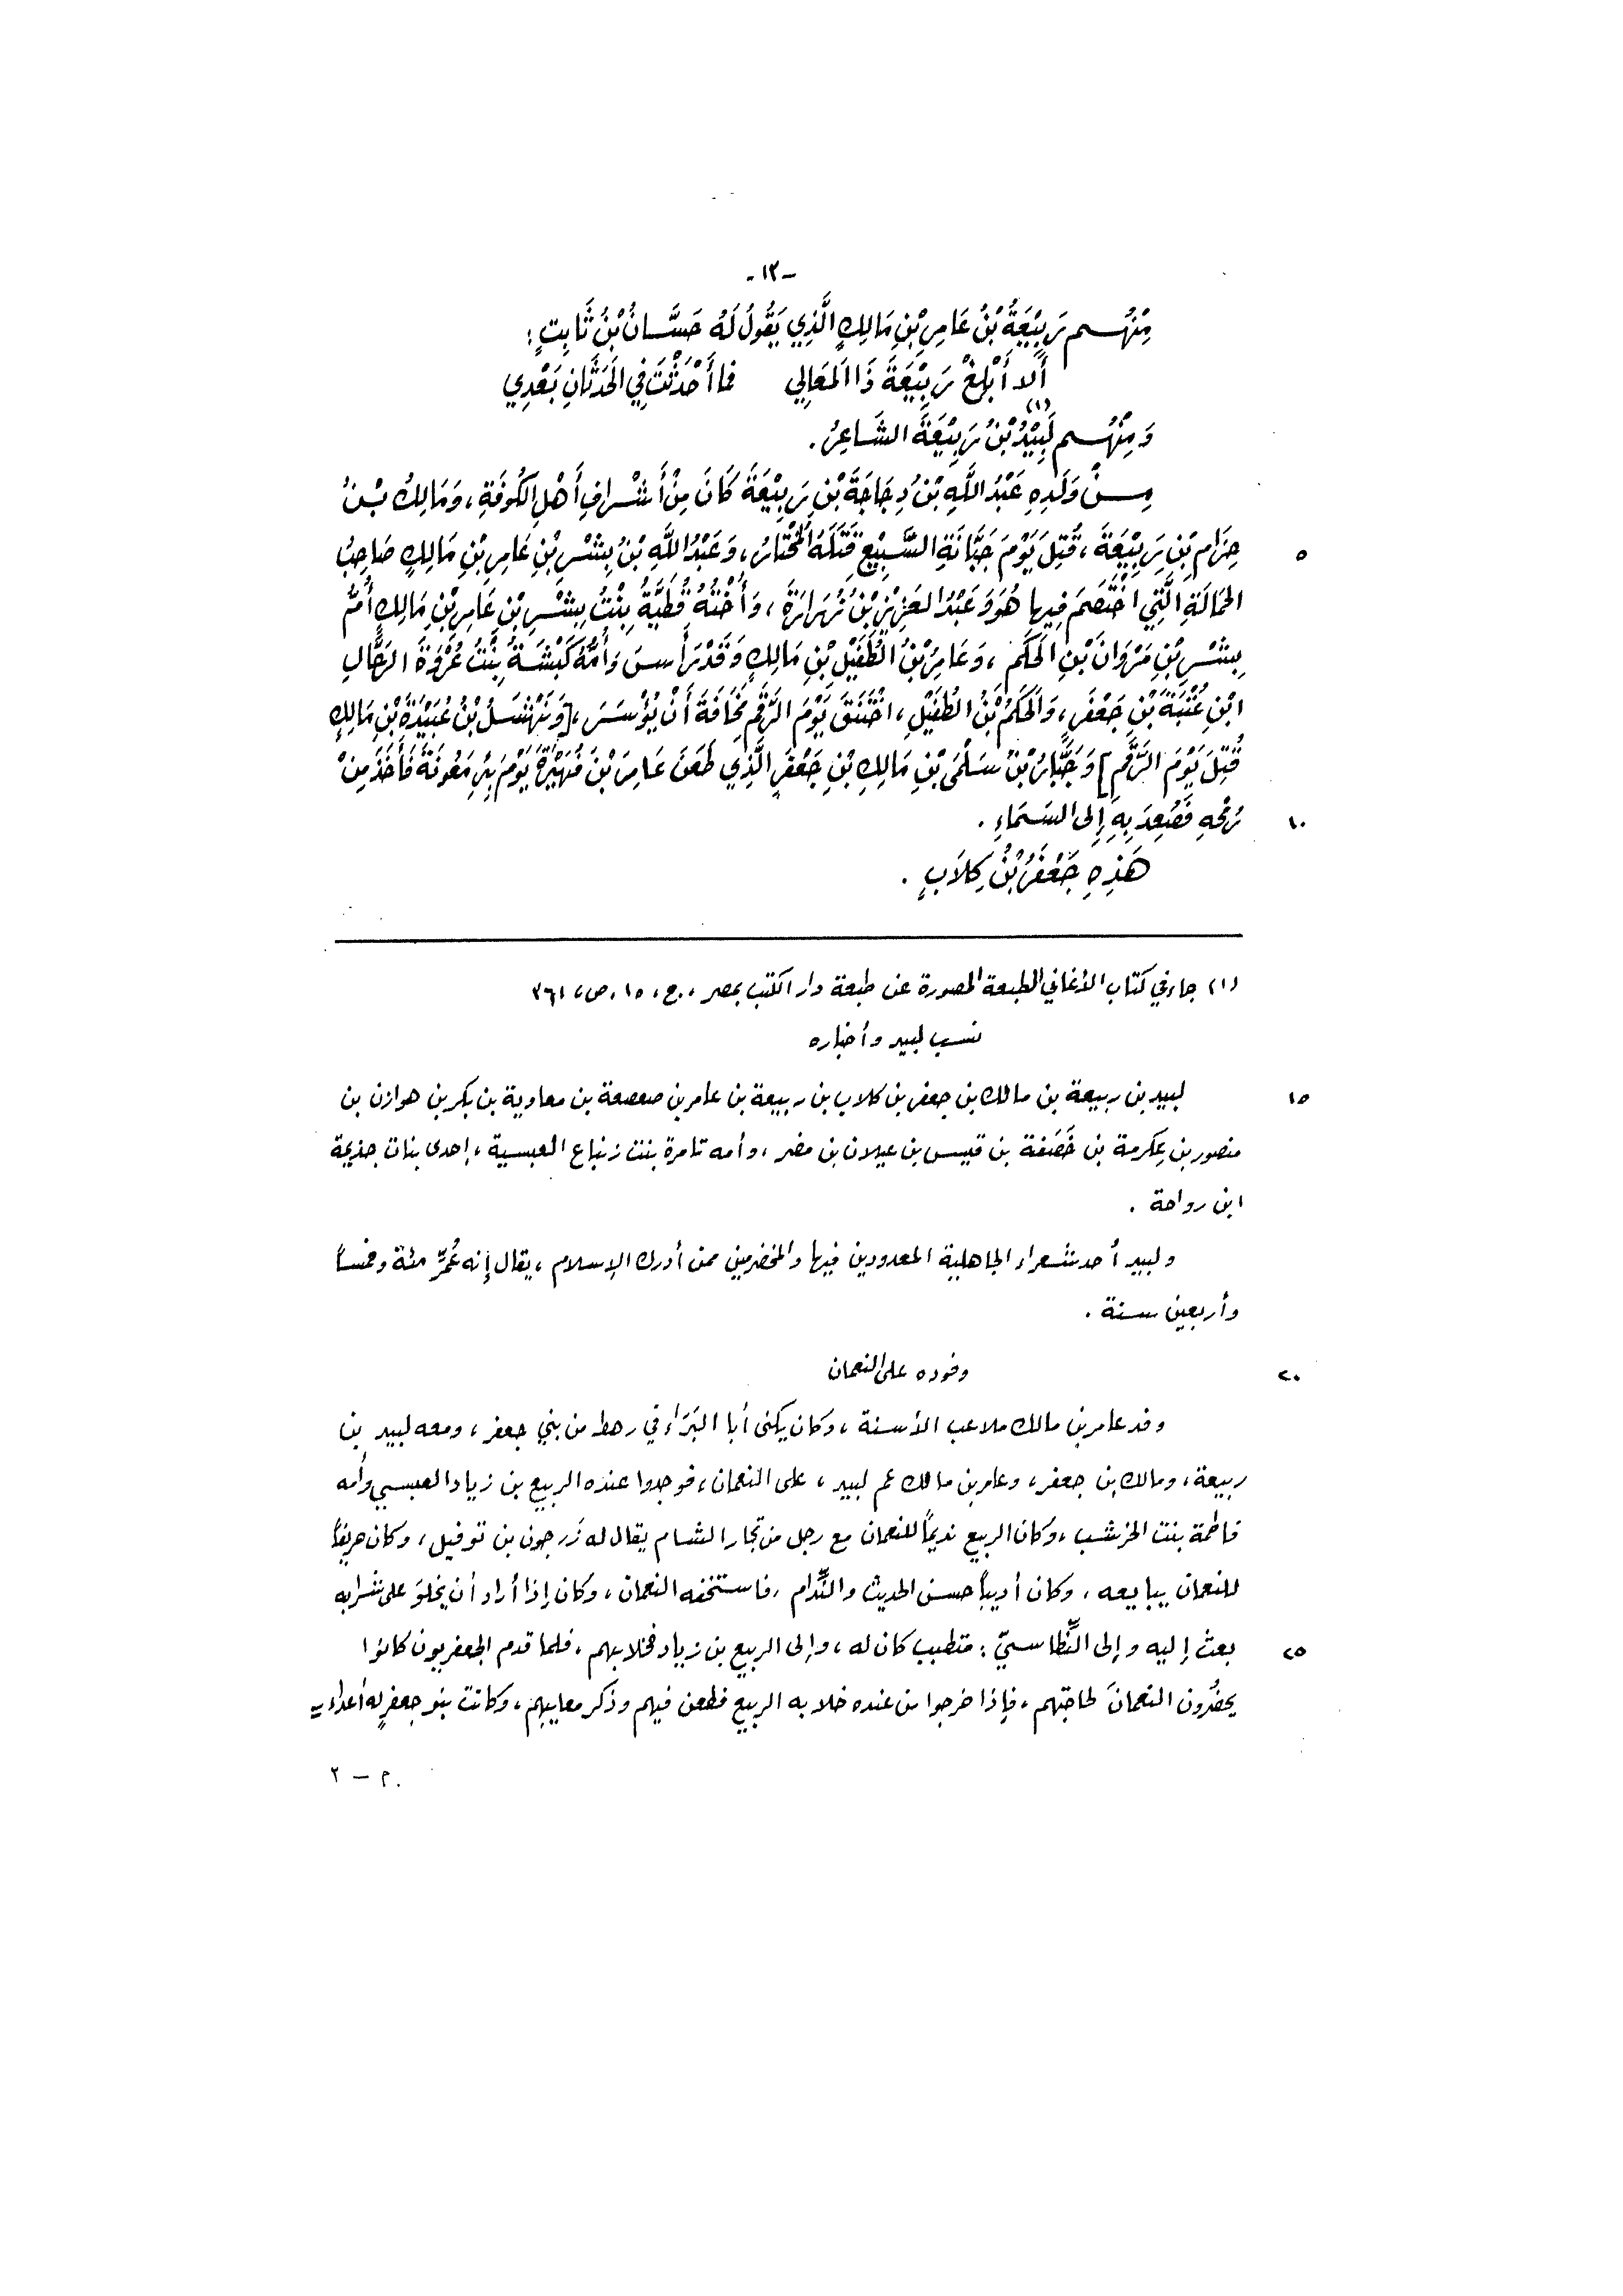 -١٣-
مِنْهُم رَبِيْعَةُ بْنُ عَامِرِ بْنِ مَالِكٍ الَّذِي يَقُولُ لَهُ حَسَّانُ بْنُ ثَابِتٍ :
أَلا أَبْلِغْ رَبِيْعَةَ ذَا المَعَالِي    فما أَحْدَثْتَ فِي الحَدَثَانِ بَعْدِي
وَمِنْهُم لَبِيْدُ بْنُ رَبِيْعَةَ (١) الشَّاعِرُ .
مِنْ وَلَدِهِ عَبْدُ اللَّهِ بْنُ دِجَاجَةَ بْنِ رَبِيْعَةَ كَانَ مِنْ أَشْرافِ أَهْلِ الكُوفَةِ ، وَمَالِكُ بْنُ
٥ حِزَامِ بْنِ رَبِيْعَةَ ، قُتِلَ يَوْمَ جَبَّانَةِ السَّبِيْعِ قَتَلَهُ المُخْتَارُ ، وَعَبْدُ اللَّهِ بْنُ بِشْرِ بْنِ عَامِرِ بْنِ مَالِكٍ صَاحِبُ
الحَمَالَةِ الَّتِي اخْتَصَمَ فِيها هُوَ وَعَبْدُ العَزِيْزِ بْنُ زُرَارَةَ ، وَأُخْتُهُ قُطَيَّةُ بِنْتُ بِشْرِ بْنِ عَامِرِ بْنِ مَالِكٍ أُمُّ
بِشْرِ بْنِ مَرْوَانَ بْنِ الحَكَمِ ، وَعَامِرُ بْنُ الطُّفَيْلِ بْنِ مَالِكٍ وَقَدْ رَأَسَ وَأُمُّهُ كَبْشَةُ بِنْتُ عُرْوَةَ الرَّحَّالِ
ابْنِ عُتْبَةَ بْنِ جَعْفَرٍ ، وَالحَكَمُ بْنُ الطُّفَيْلِ ، اخْتَنَقَ يَوْمَ الرَّقَمِ مَخَافَةَ أَنْ يُؤْسَرَ ، [وَنَهْشَلُ بْنُ عُبَيْدَةَ بْنِ مَالِكٍ
قُتِلَ يَوْمَ الرَّقَمِ] وَجَبَّارُ بْنُ سَلْمَى بْنِ مَالِكِ بْنِ جَعْفَرٍ الَّذِي طَعَنَ عَامِرَ بْنَ فُهَيْرَةَ يَوْمَ بِئْرِ مَعُونَةَ فَأُخِذَ مِنْ
١٠ رُمْحِهِ فَصُعِدَ بِهِ إِلى السَّمَاءِ .
هَذِهِ جَعْفَرُ بْنُ كِلاَبٍ .
(١) جاء في كتاب الأغاني الطبعة المصورة عن طبعة دار الكتب بمصر ، ج ، ١٥ ، ص ، ٣٦١
نسب لبيد وأخباره
١٥ لبيد بن ربيعة بن مالك بن جعفر بن كلاب بن ربيعة بن عامر بن صعصعة بن معاوية بن بكر بن هوازن بن
منصور بن عِكرمة بن خَصَفة بن قيس بن عيلان بن مضر ، وأمه تامرة بنت زنباع العبسية ، إحدى بنات جذيمة
ابن رواحة .
ولبيد أحد شعراء الجاهلية المعدودين فيها والمخضرمين ممن أدرك الإسلام ، يقال إنه عُمِّرَ مئة وخمساً
وأربعين سنة .
٢٠ وفوده على النعمان
وفد عامر بن مالك ملاعب الأسنة ، وكان يكنى أبا البَرَاء في رهط من بني جعفر ، ومعه لبيد بن
ربيعة ، ومالك بن جعفر ، وعامر بن مالك عم لبيد ، على النعمان ، فوجدوا عنده الربيع بن زياد العبسي وأمه
فاطمة بنت الخرشب ، وكان الربيع نديماً للنعمان مع رجل من تجار الشام يقال له زَرجون بن توفيل ، وكان حريفاً
للنعمان يبايعه ، وكان أديباً حسن الحديث والنِّدام ، فاستخفه النعمان ، وكان إذا أراد أن يخلوَ على شرابه
٢٥ بعث إليه وإلى النِّطاسيّ : متطبب كان له ، وإلى الربيع بن زياد فخلا بهم ، فلما قدم الجعفريون كانوا
يحضُرون النعمانَ لحاجتهم ، فإذا خرجوا من عنده خلا به الربيع فطعن فيهم وذكر معايبهم ، وكانت بنو جعفر له أعداء =
م - ٢